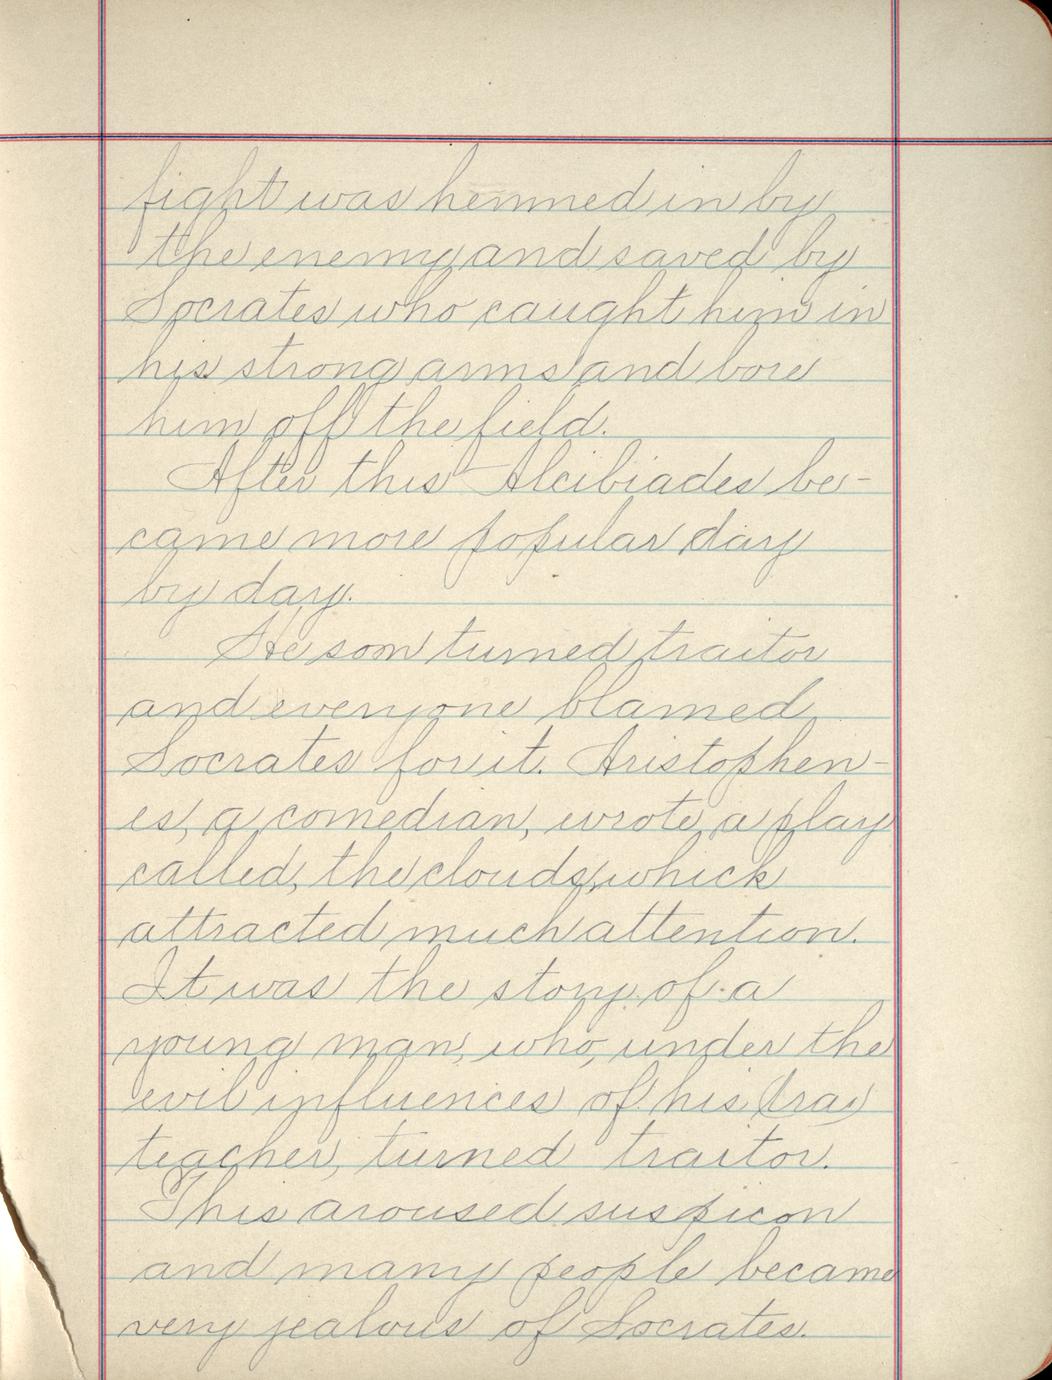 fight was hemmed in by
the enemy and saved by
Socrates who caught him in
his strong arms and bore
him off the field.
After this Alcibiades be-
came more popular day
by day.
He soon turned traitor
and everyone blamed
Socrates for it. Aristophen-
es, a comedian, wrote a play
called, the clouds, which
attracted much attention.
It was the story of a
young man, who, under the
evil influences of his (tra)
teacher, turned traitor.
This aroused suspicon
and many people became
very jealous of Socrates.